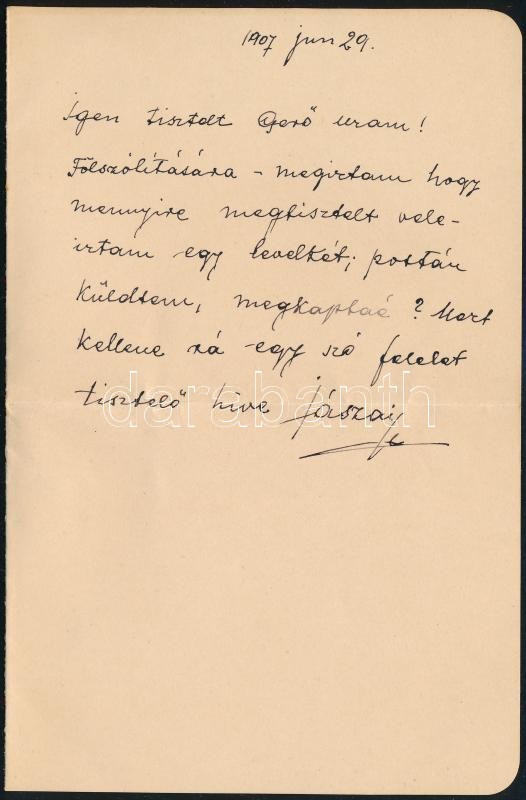 1907 jun 29.
Igen tisztelt Gerő uram!
Fölszólítására - megirtam hogy
mennyire megtisztelt vele -
irtam egy levelkét; postán
küldtem, megkaptaé? Mert
kellene rá egy szó felelet
tisztelő hive Jászai
darabanth